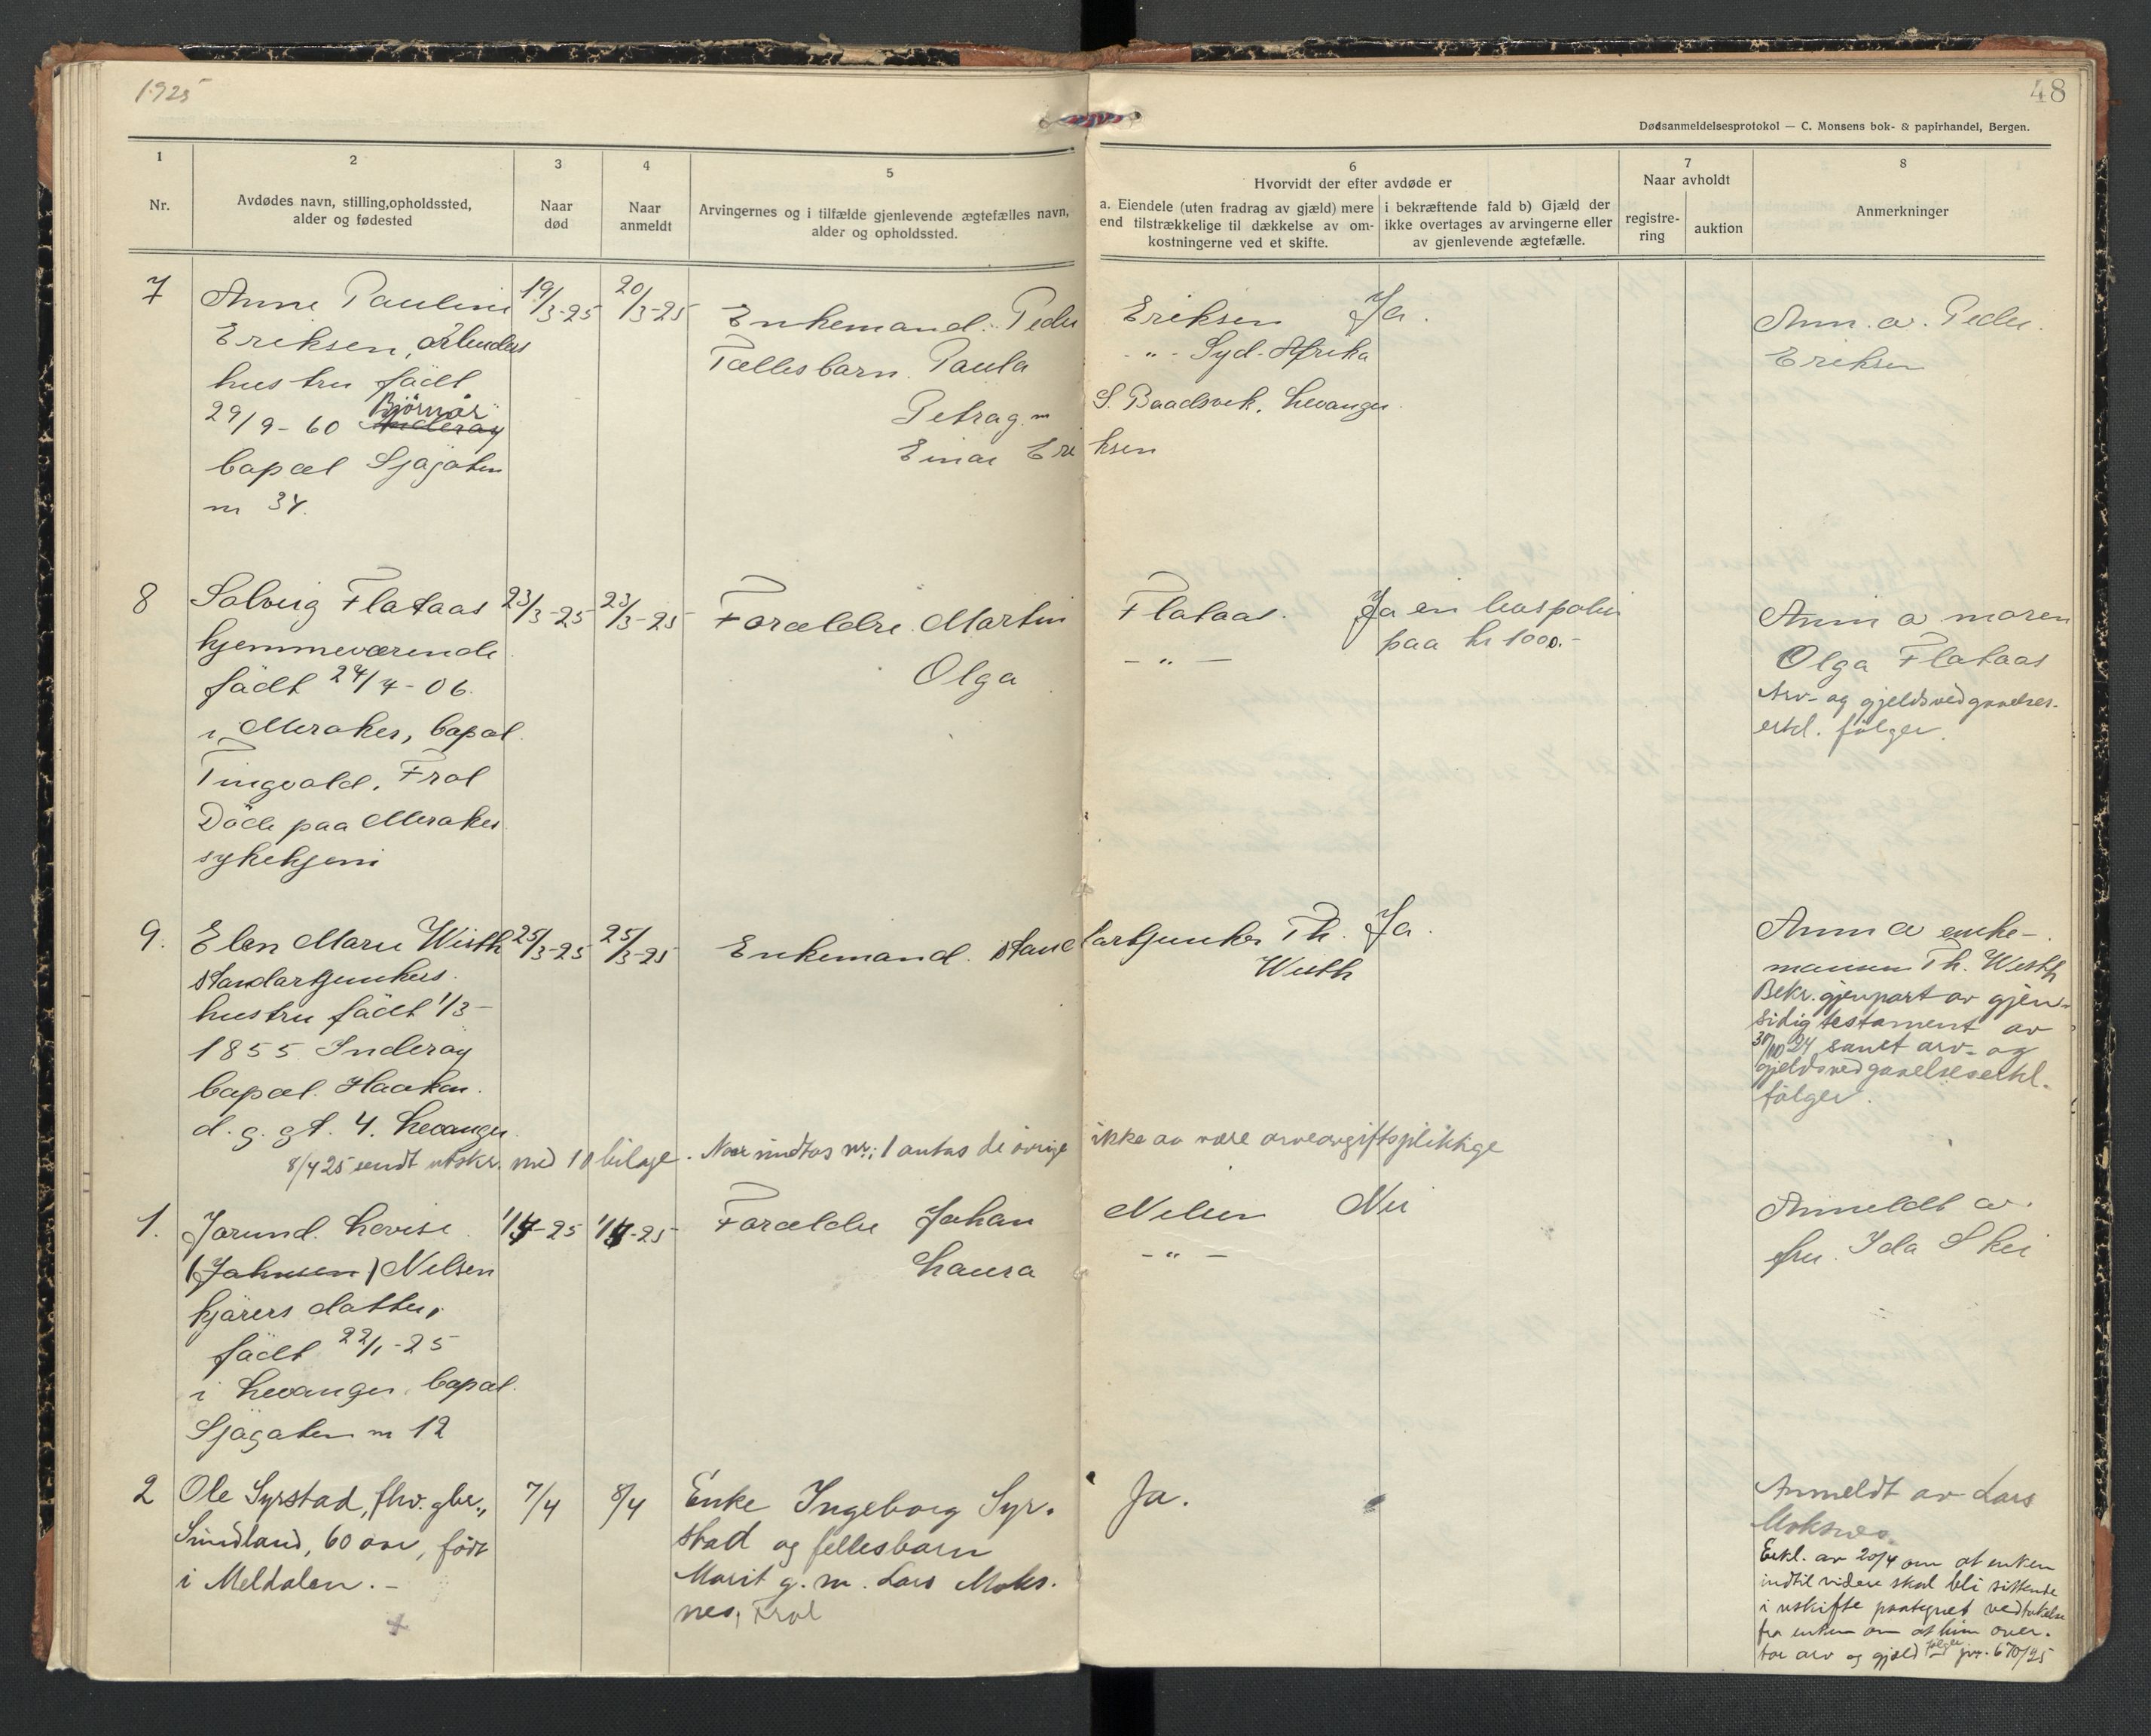 1925
48
Dødsanmeldelsesprotokol — C. Monsens bok- & papirhandel, Bergen.
1
Nr.
2
Avdødes navn, stilling, opholdssted,
alder og fødested
3
Naar
død
4
Naar
anmeldt
5
Arvingernes og i tilfælde gjenlevende ægtefælles navn,
alder og opholdssted.
6
Hvorvidt der efter avdøde er
a. Eiendele (uten fradrag av gjæld) mere
end tilstrækkelige til dækkelse av om-
kostningerne ved et skifte.
i bekræftende fald b) Gjæld der
ikke overtages av arvingerne eller
av gjenlevende ægtefælle.
7
Naar avholdt
registre-
ring
auktion
8
Anmerkninger
7
Anne Pauline
Eriksen, arbeiders
hustru födt
29/9-60 Björnör
Inderøy
bopæl Sjögaten
nr 34.
19/3-25
20/3-25
Enkemand: Peder Eriksen
Fællesbarn Paula -"- Syd-Afrika
Petra g. m S. Baadsvik, Levanger
Einar Eriksen
Ja.
Anm. a. Peder
Eriksen
8
Solveig Flataas
hjemmeværende
födt 24/4-06.
i Meraker, bopæl
Tingvold, Frol
Döde paa Meraker
sykehjem
23/3-25
23/3-25
Forældre Martin Flataas.
Olga -"-
Ja en livspolise
paa kr 1000.-
Anm a moren
Olga Flataas
Arv- og gjeldsvedgaaelses-
erkl. følger.
9.
Elen Marie Wisth
standartjunkers
hustru födt 1/3-
1855 Inderøy
bopæl. Haakon
d. g. gt. 4. Levanger
25/3-25
25/3-25
Enkemand. standartjunker Th.
Wisth
Ja.
Anm a enke-
manden Th. Wisth
Bekr. gjenpart av gjen-
sidig testament av
30/10 24 samt arv- og
gjeldsvedgaaelseserkl.
følger.
8/4 25 sendt utskr. med 10 bilage. Naar undtas nr. 1 antas de øvrige ikke av være arveavgiftspliktige
1.
Jorund Lovise
(Johnsen) Nelsen
kjörers datter,
födt 22/1-25
i Levanger, bopæl.
Sjögaten nr 12
1/4-25
1/4-25
Forældre Johan Nelsen
Laura -"-
Nei
Anmeldt av
fru Ida Skei
2
Ole Syrstad, fhv. gbr.,
Sundland, 60 aar, født
i Meldalen. -
7/4
8/4
Enke Ingeborg Syr-
stad og fellesbarn
Marit g. m. Lars Moks-
nes, Frol
Ja.
Anmeldt av Lars
Moksnes
Erkl. av 20/4 om at enken
indtil videre skal bli sittende
i uskifte paategnet vedtakelse
fra enken om at hun over-
tar arv og gjæld følger jnr. 670/25